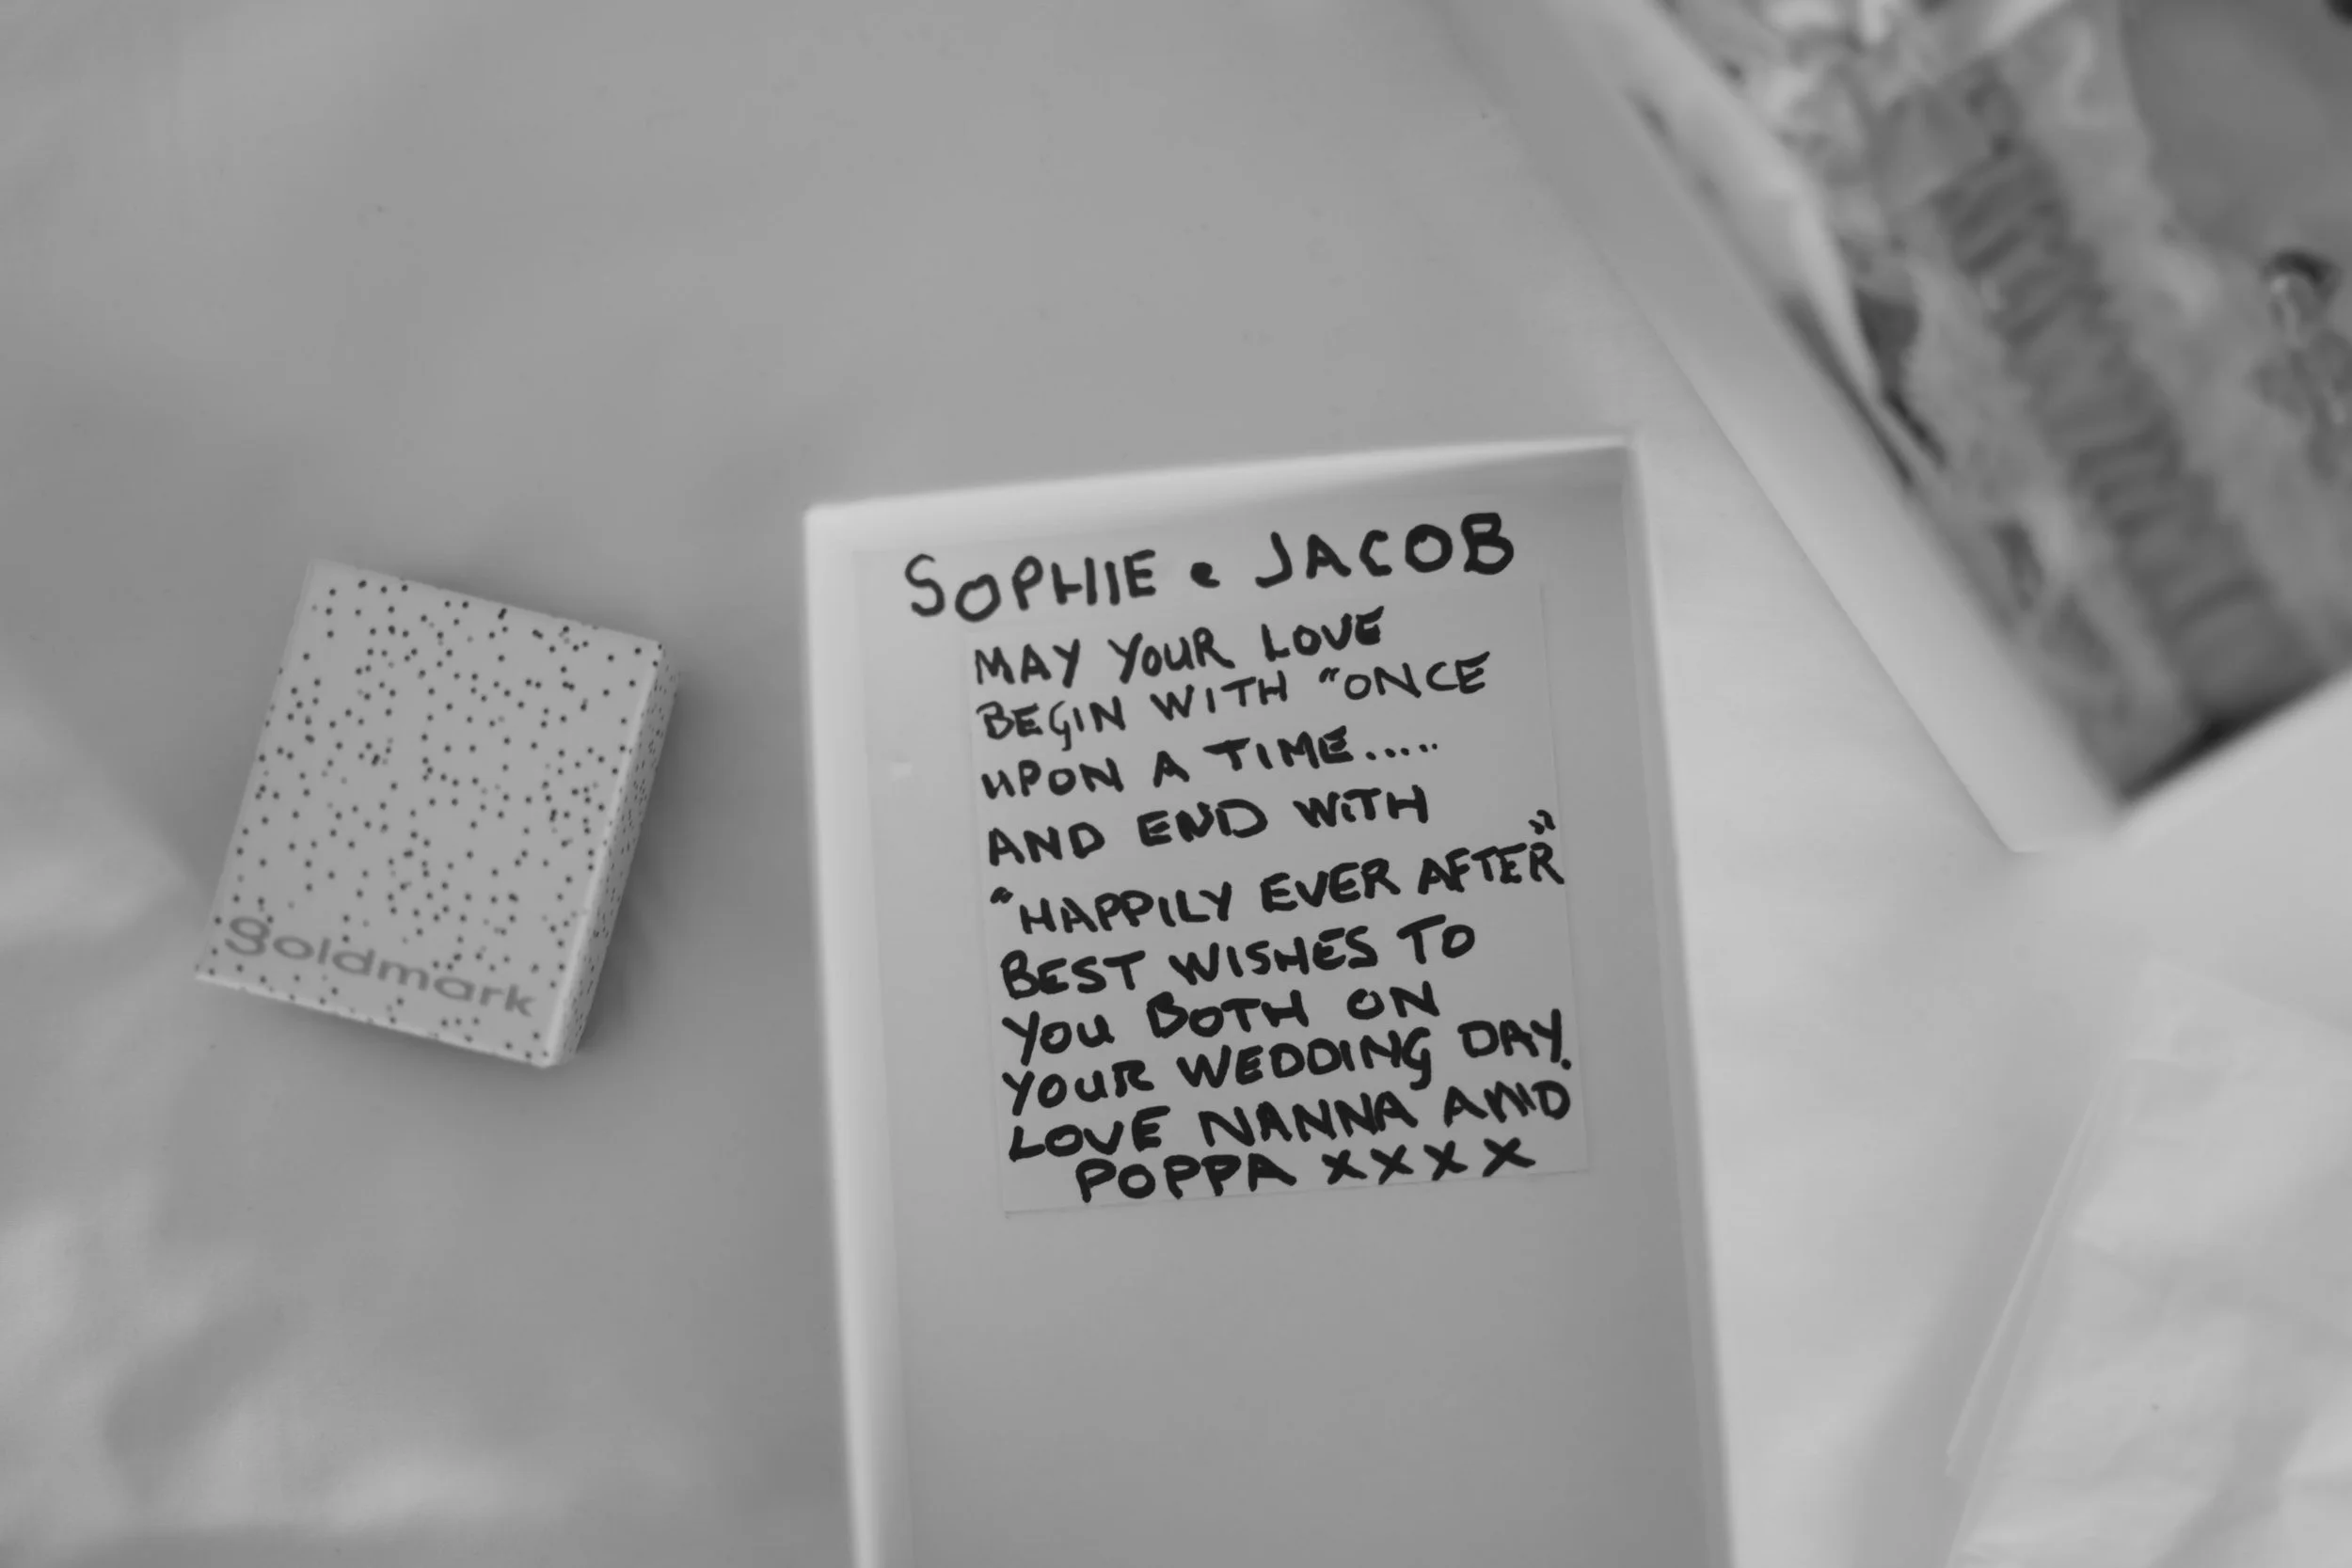 goldmark
SOPHIE e JACOB
MAY YOUR LOVE
BEGIN WITH "ONCE
UPON A TIME.....
AND END WITH
"HAPPILY EVER AFTER"
BEST WISHES TO
YOU BOTH ON
YOUR WEDDING DAY.
LOVE NANNA AND
POPPA XXXX